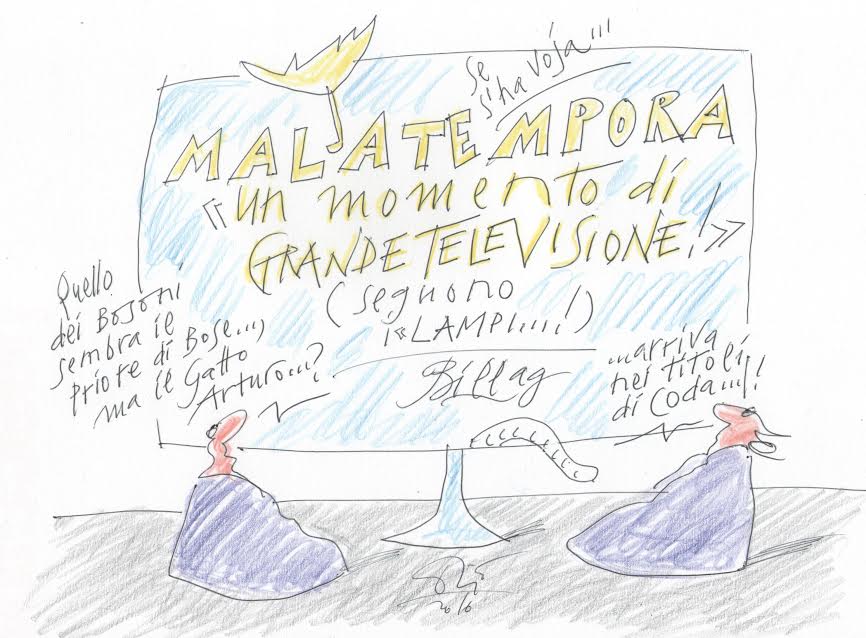 Se
s'ha voja...
MALATEMPORA
«un momento di
GRANDE TELEVISIONE!»
(seguono
i «LAMPI....!)
Billag
Quello
dei Bosoni
sembra il
priore di Bose...,
ma il Gatto
Arturo...?
...arriva
nei titoli
di Coda...!